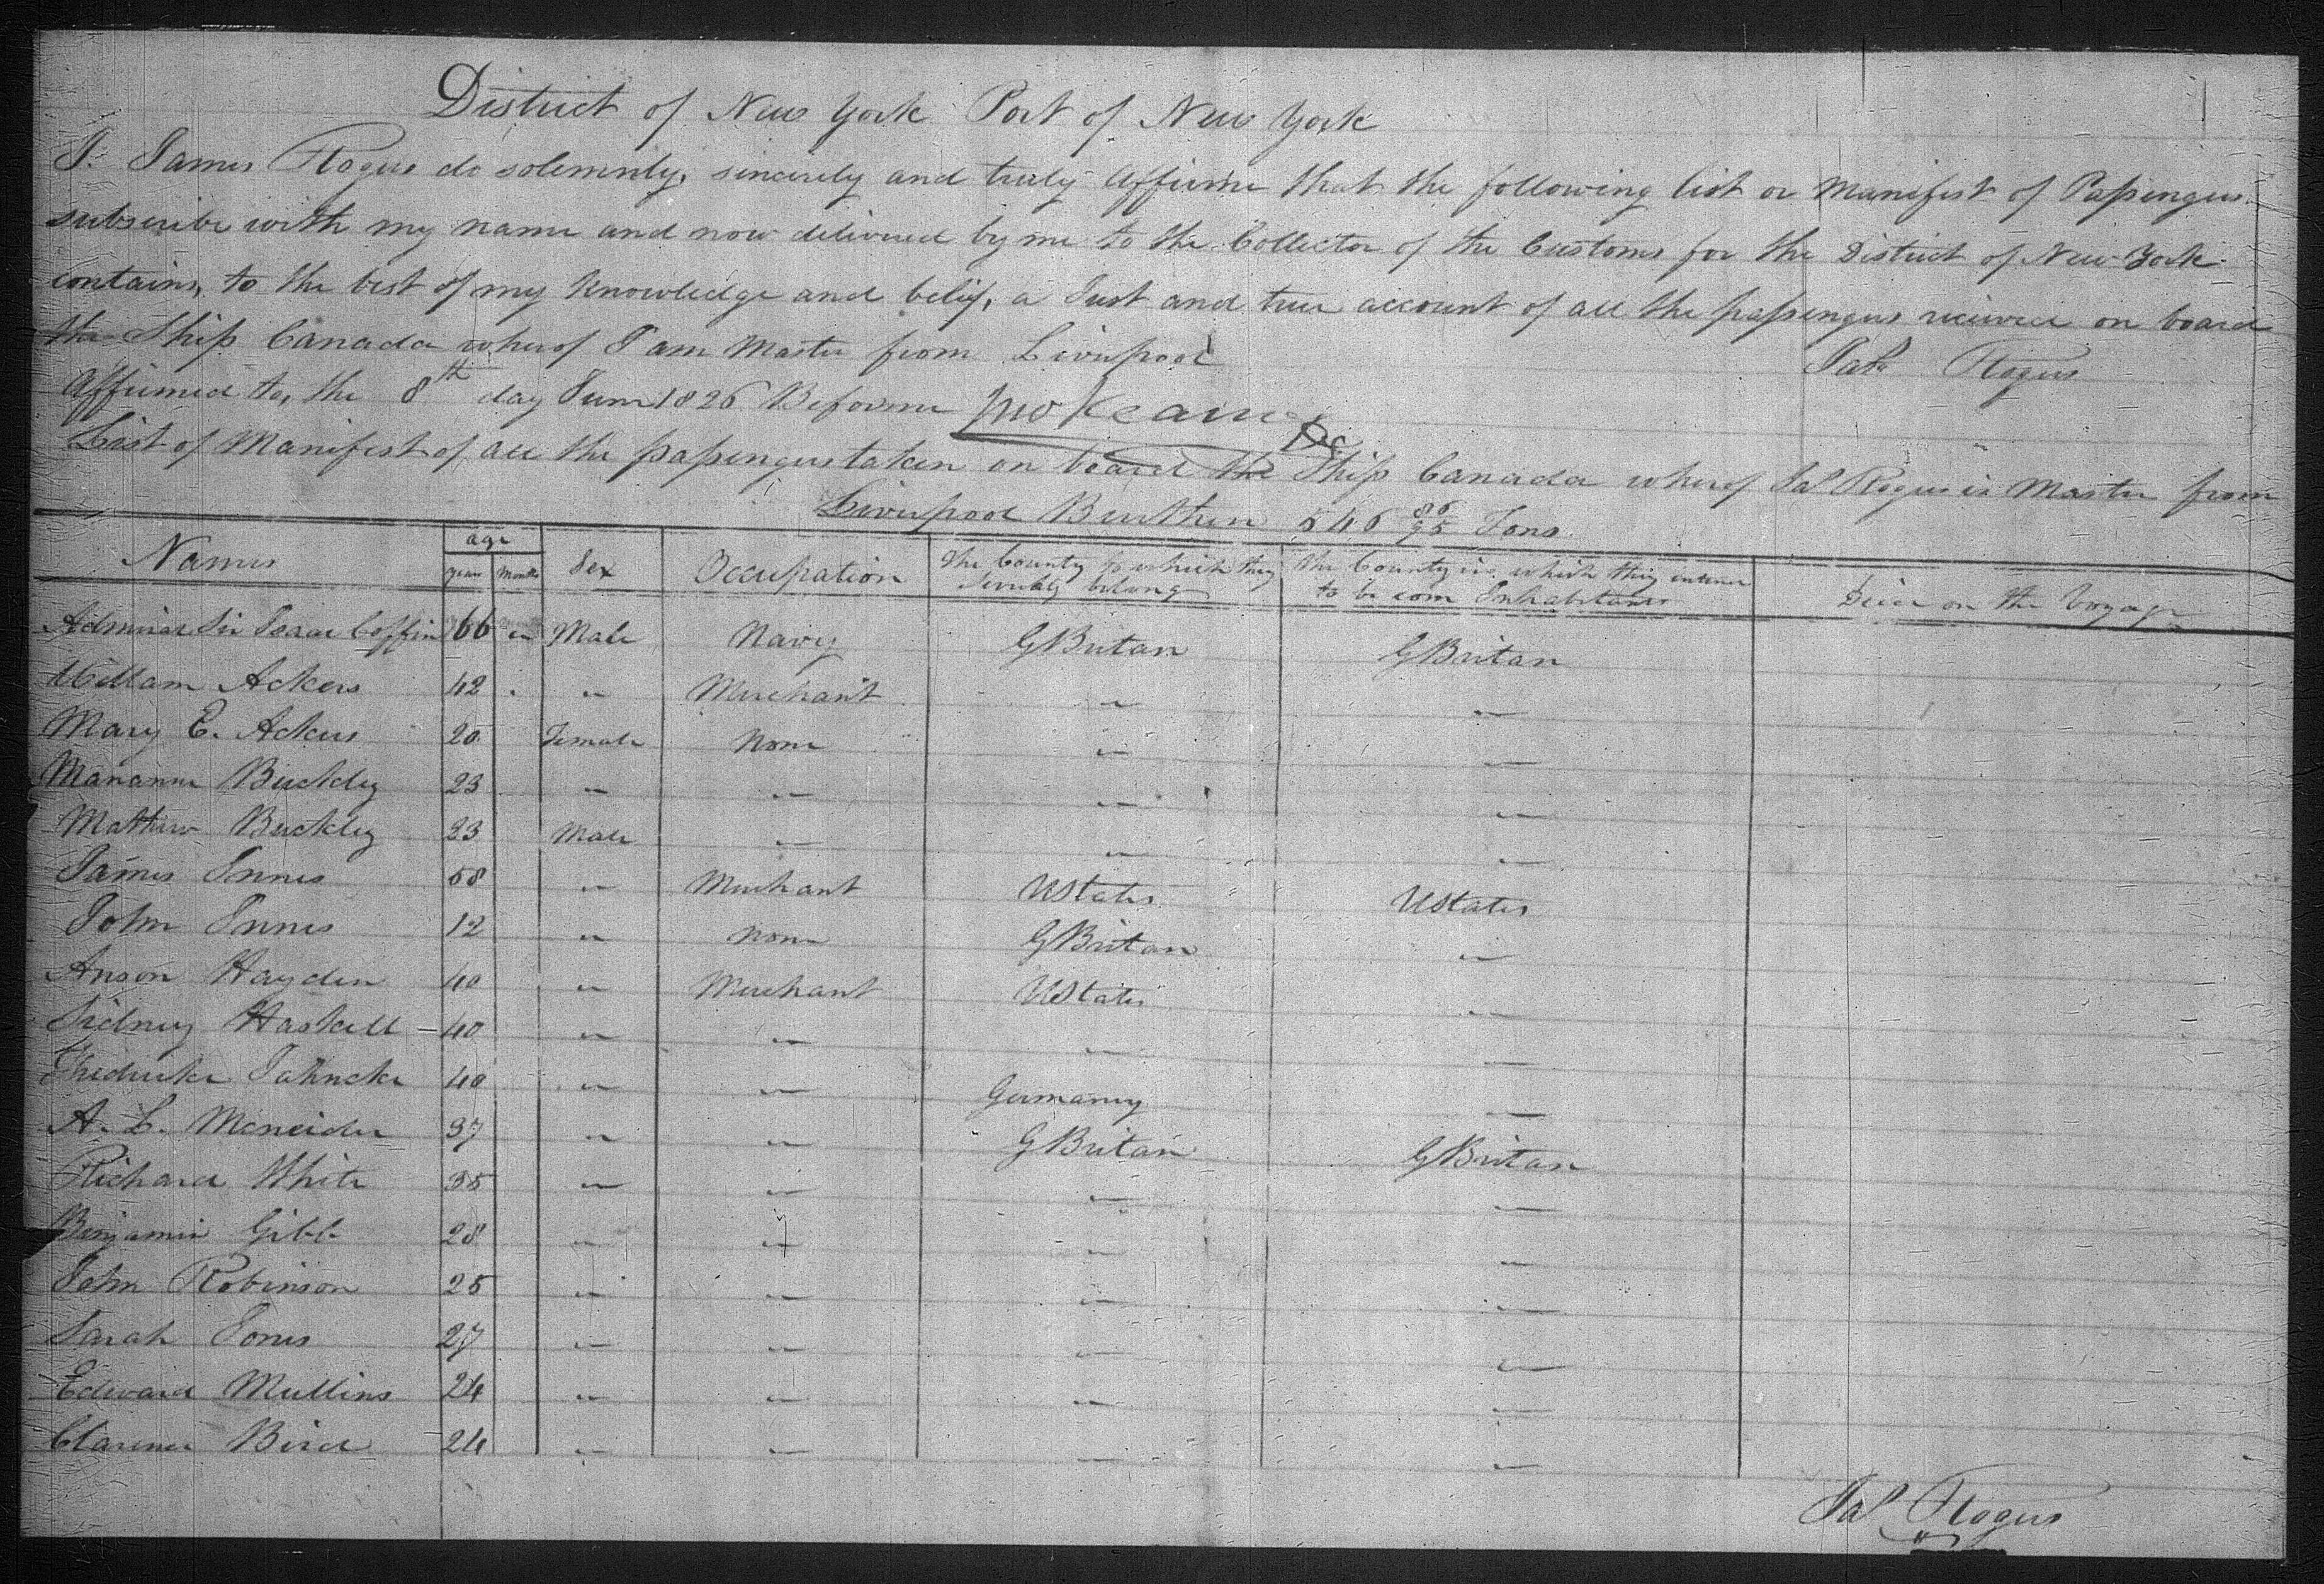 District of New York Port of New York
I. James Rogers do solemnly, sincerely and truly affirm that the following list or Manifest of Passengers
subscribe with my name and now delivered by me to the Collector of the Customs for the District of New York
contains, to the best of my Knowledge and belief, a Just and true account of all the passengers received on board
the Ship Canada whereof I am Master from Liverpool
Jas Rogers
Affirmed to, the 8th day June 1826 Before me
List of Manifest of all the passengers taken on board the Ship Canada whereof Jas Rogers is Master from
Liverpool Burthen 546 86/95 Tons
Names age years Months Sex Occupation The County to which they severally belong The County in which they intend to be com Inhabitants Died on the Voyage
Admiral Sir Isaac Coffin 66 " Male Navy G Britan G Britan
William Ackers 42 " " Merchant " "
Mary E. Ackers 20 Female None " "
Marianne Buckley 23 " " " "
Mathew Buckley 23 Male " " "
James Innes 58 " Merchant UStates UStates
John Innes 12 " None G Britan "
Anson Hayden 40 " Merchant UStates "
Sidney Haskell 40 " " " "
Fredricke Jahncke 40 " " Germany "
A. L. 37 " " G Britan G Britan
Richard White 35 " " " "
Benjamin Gibb 28 " " " "
John Robinson 25 " " " "
Sarah Jones 27 " " " "
Edward Mullins 24 " " " "
Clarence Bird 24 " " " "
Jas Rogers